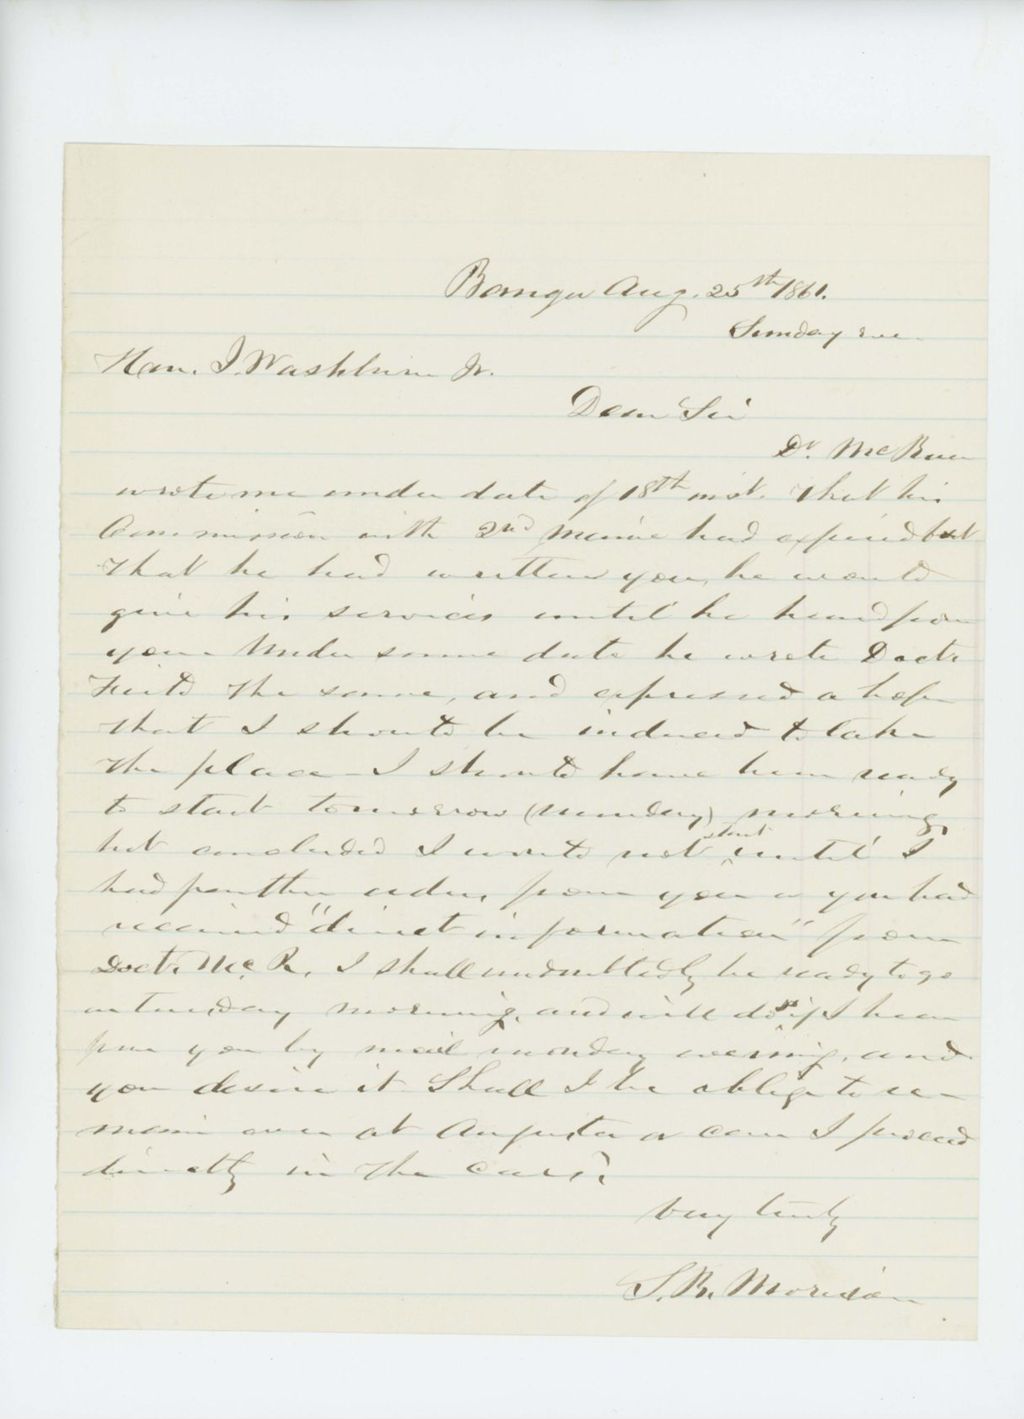 Bangor Aug. 25th 1861.
Sunday eve
Hon. I. Washburn Jr.
Dear Sir
Dr. McRuer
wrote me under date of 18th inst. that his
Commission with 2nd Maine had expired but
that he had written you, he would
give his services until he heard from
you. Under same date he wrote Doctr
Field the same, and expressed a hope
that I should be induced to take
the place – I should have been ready
to start tomorrow (monday) morning,
but concluded I would not start until I
had further orders from you or you had
received "direct information" from
Doctr. Mc. R. I shall undoubtedly be ready to go
on tuesday morning, and will do so if I hear
from you by mail monday evening, and
you desire it. Shall I be oblige to re-
main over at Augusta or can I proceed
directly in the cars?
Very truly
S. B. Morison